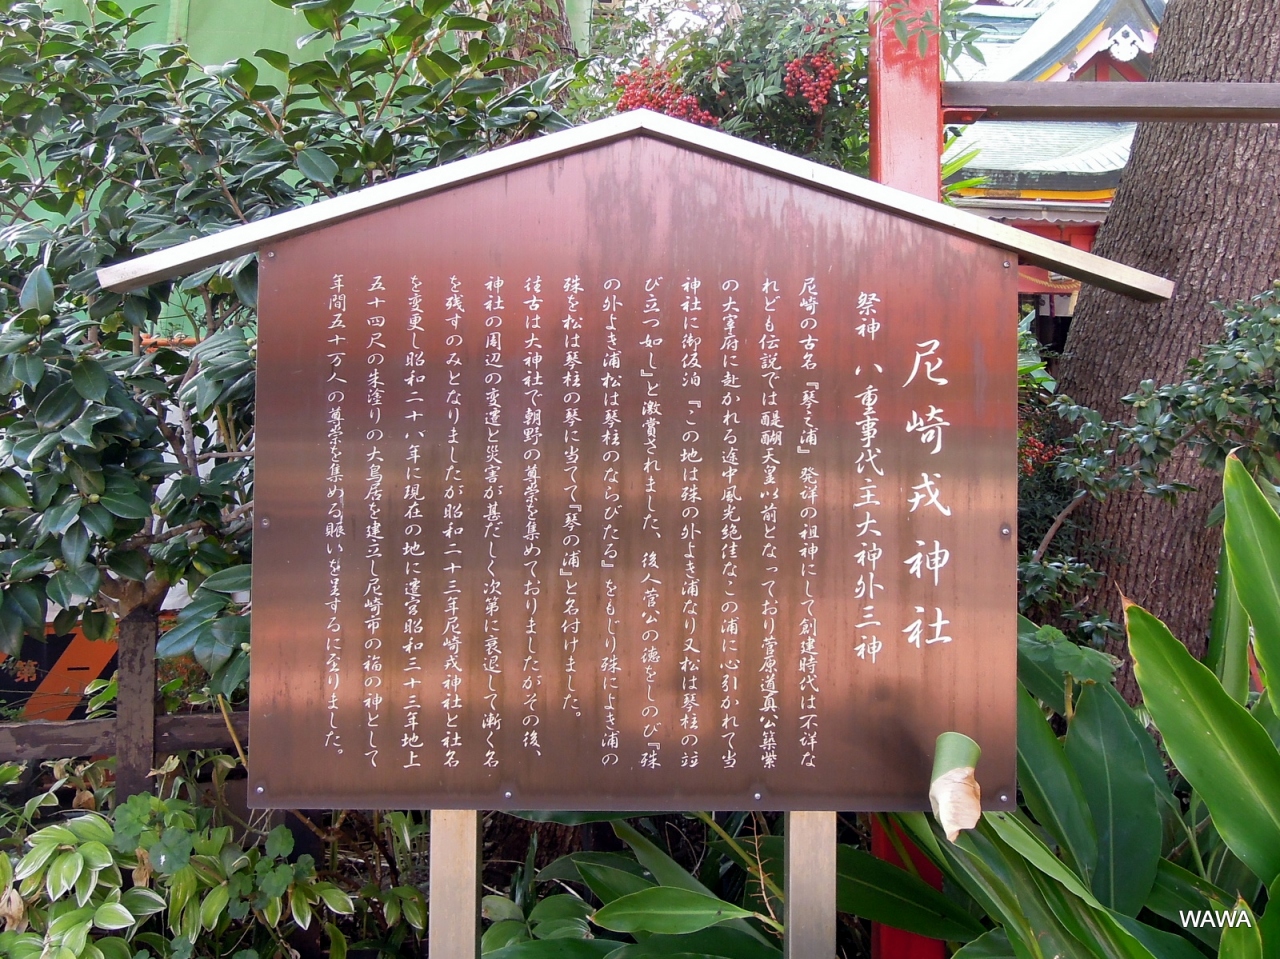 尼崎戎神社
祭神 八重事代主大神外三神
尼崎の古名『琴之浦』発祥の祖神にして創建時代は不詳な
れども伝説では醍醐天皇以前となっており菅原道真公築紫
の大宰府に赴かれる途中風光絶佳なこの浦に心引かれて当
神社に御仮泊『この地は殊の外よき浦なり又松は琴柱の竝
び立つ如し』と激賞されました、後人菅公の徳をしのび『殊
の外よき浦松は琴柱のならびたる』をもじり殊によき浦の
殊を松は琴柱の琴に当てて『琴の浦』と名付けました。
往古は大神社で朝野の尊崇を集めておりましたがその後、
神社の周辺の変遷と災害が甚だしく次第に衰退して漸く名
を残すのみとなりましたが昭和二十三年尼崎戎神社と社名
を変更し昭和二十八年に現在の地に遷宮昭和三十三年地上
五十四尺の朱塗りの大鳥居を建立し尼崎市の福の神として
年間五十万人の尊崇を集める賑いを呈するに至りました。
第一
WAWA